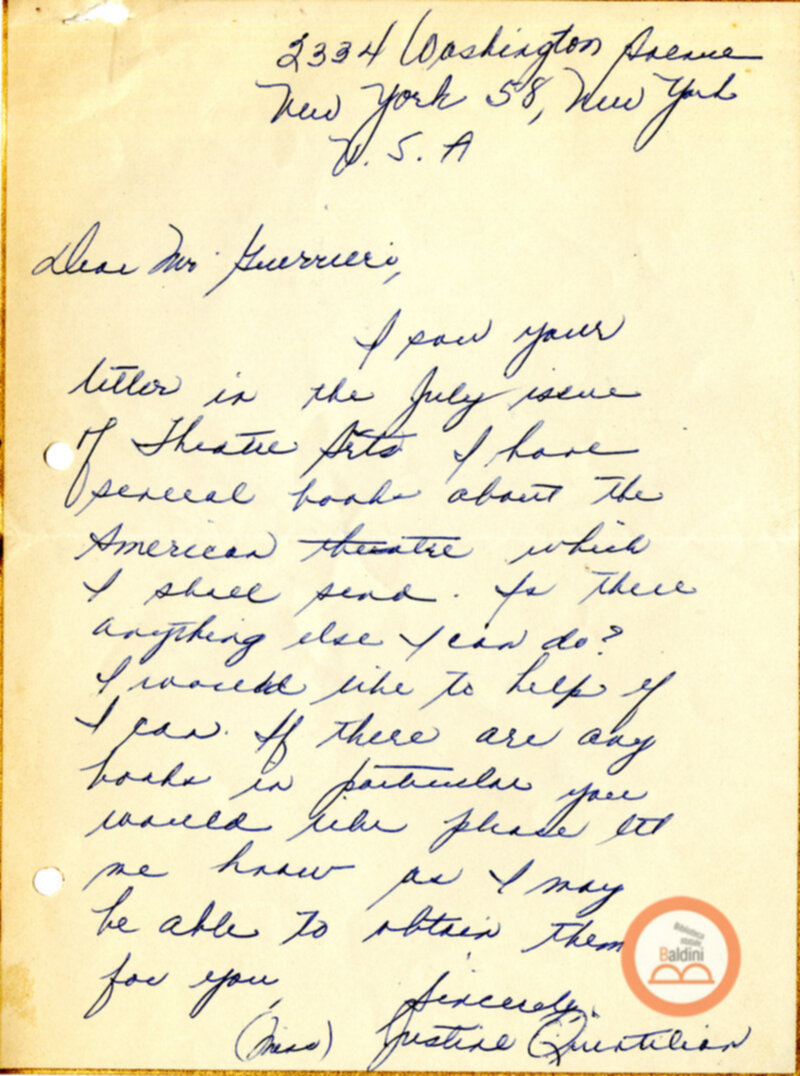 2334 Washington Avenue
New York 58, New York
U. S. A
Dear Mr. Guerrieri,
I saw your
letter in the July issue
of Theatre Arts I have
several books about the
American theatre which
I shall send. Is there
anything else I can do?
I would like to help if
I can. If there are any
books in particular you
would like please let
me know as I may
be able to obtain them
for you
Sincerely,
(Miss) Justine Quintilian
Biblioteca
statale
Baldini